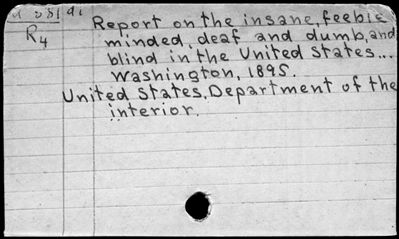 R4
Report on the insane, feeble
minded, deaf and dumb, and
blind in the United States...
Washington, 1895.
United States. Department of the
interior.